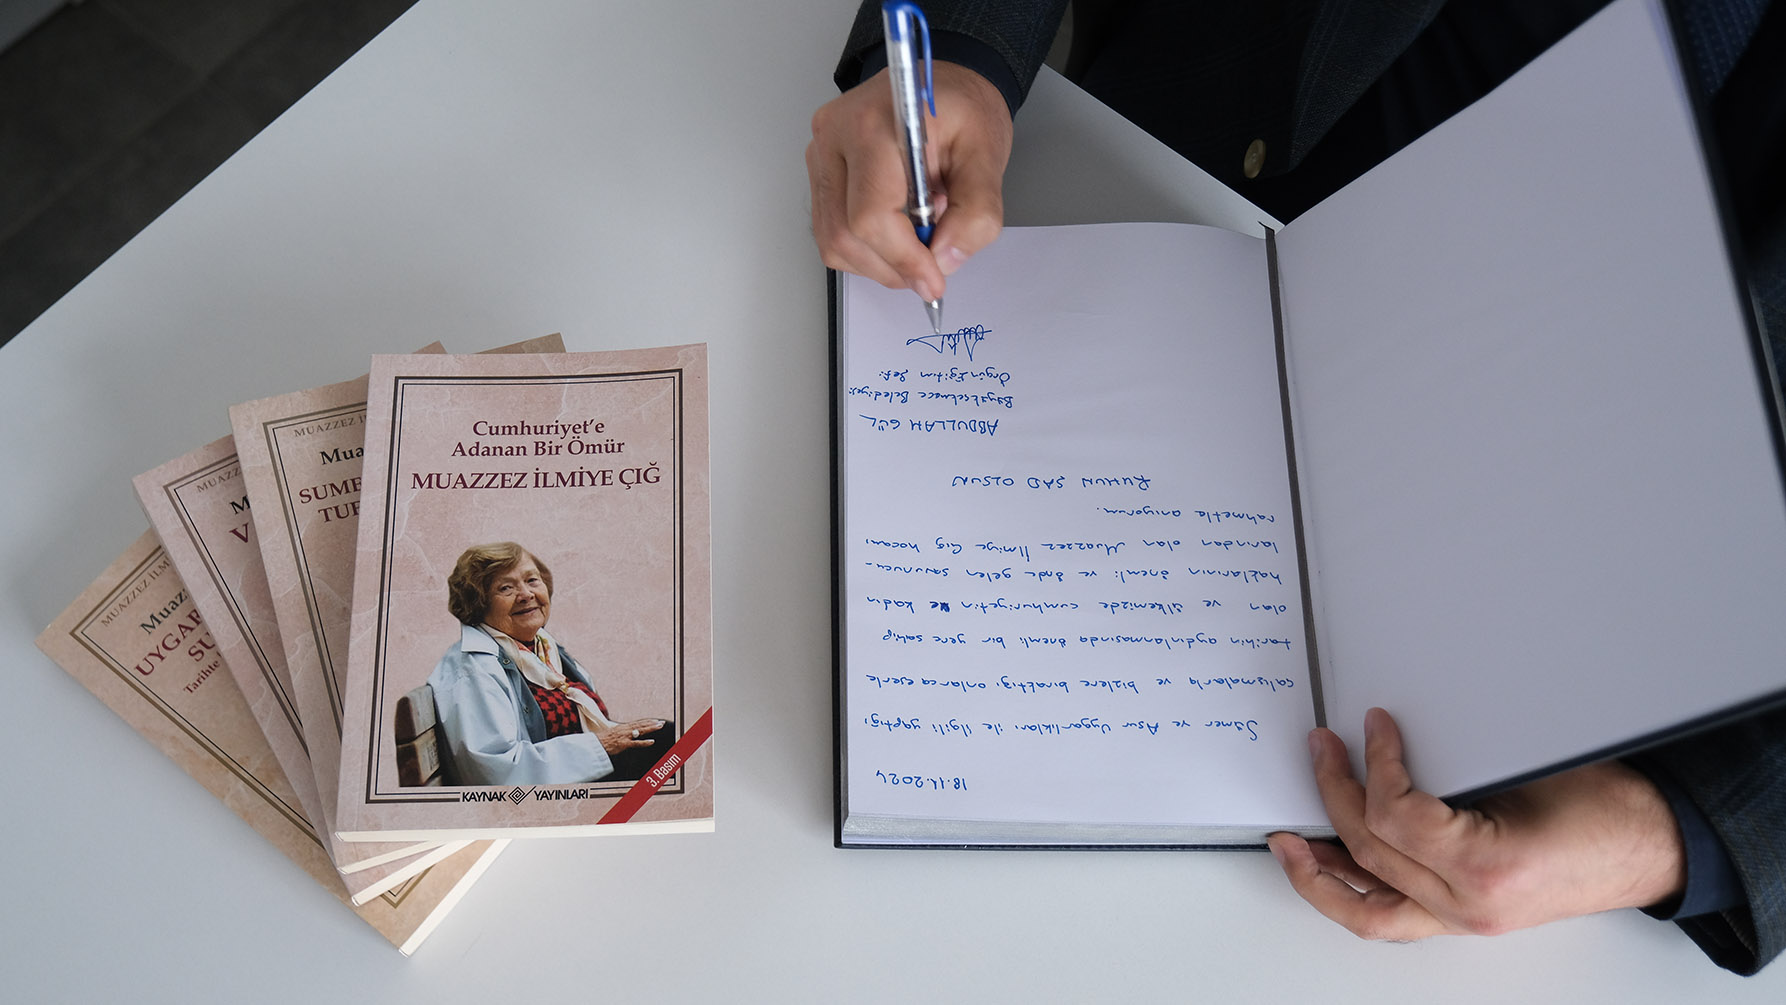 Cumhuriyet'e
Adanan Bir Ömür
MUAZZEZ İLMİYE ÇIĞ
3. Basım
KAYNAK YAYINLARI
MUAZZEZ İ
Mua
SUME
TUF
MUAZZ
M
V
MUAZZEZ İLM
Muaz
UYGAR
SU
Tarihte
18.11.2024
Sümer ve Asur Uygarlıkları ile ilgili yaptığı
çalışmalarla ve bizlere bıraktığı onlarca eserle
tarihin aydınlanmasında önemli bir yere sahip
olan ve ülkemizde cumhuriyetin ve kadın
haklarının önemli ve önde gelen savunucu-
larından olan Muazzez İlmiye Çığ hocamı
rahmetle anıyorum.
RUHUN ŞAD OLSUN
ABDULLAH GÜL
Büyükçekmece Belediyesi
Örgün Eğitim Şefi